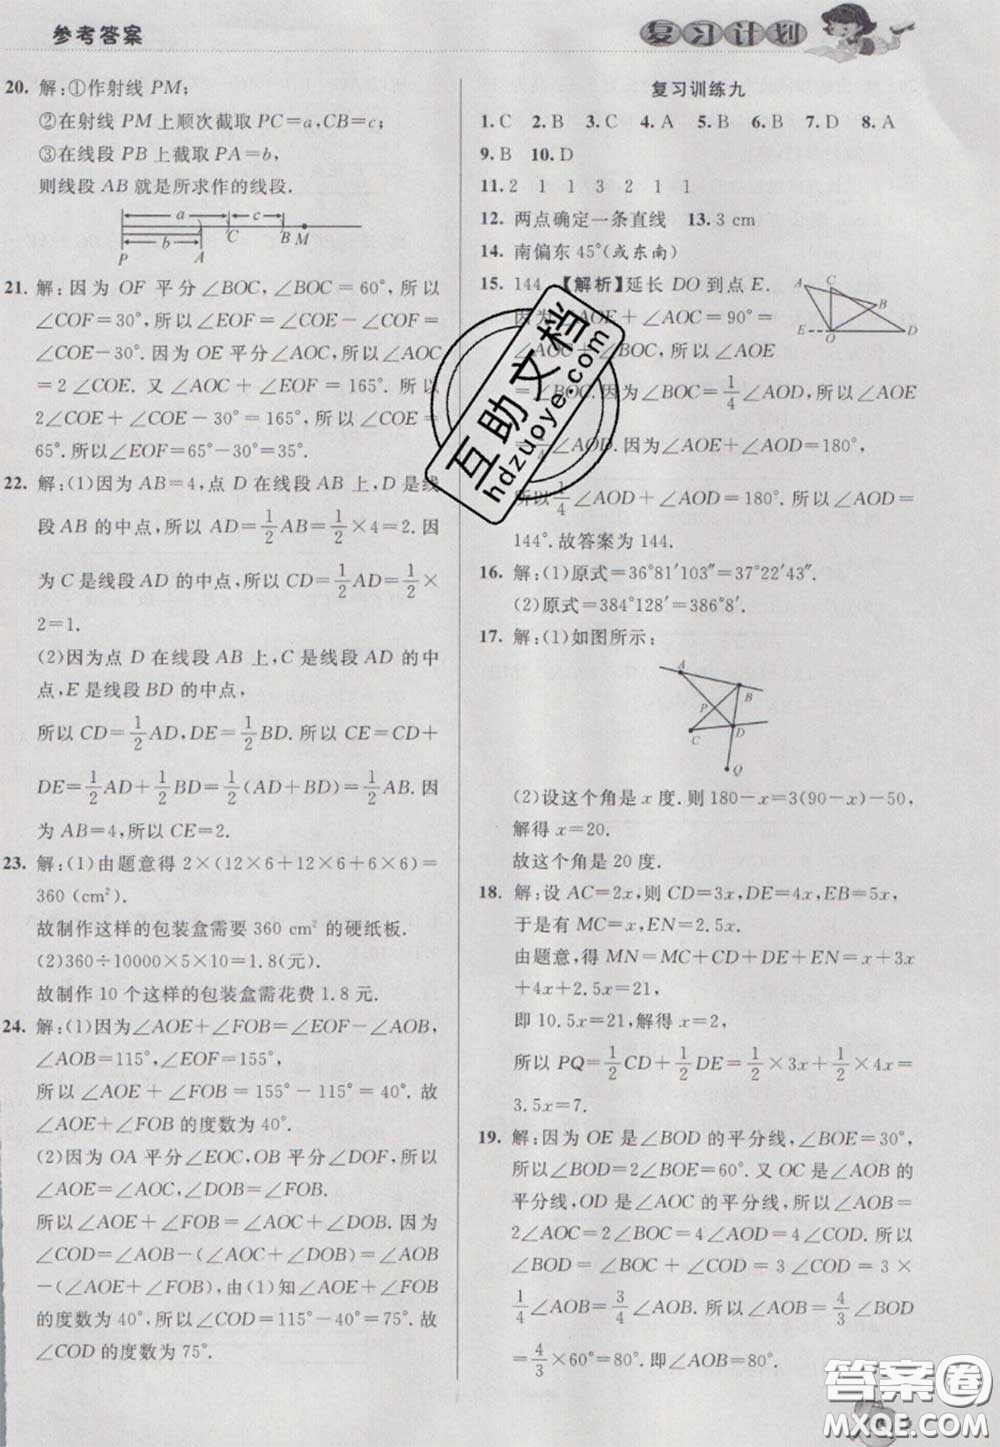 参考答案
复习计划
20. 解:①作射线 PM;
②在射线 PM 上顺次截取 PC=a,CB=c;
③在线段 PB 上截取 PA=b,
则线段 AB 就是所求作的线段.
a c
C B M
b
P A
21. 解:因为 OF 平分∠BOC,∠BOC=60°,所以
∠COF=30°,所以∠EOF=∠COE-∠COF=
∠COE-30°.因为 OE 平分∠AOC,所以∠AOC
=2∠COE.又∠AOC+∠EOF=165°.所以
2∠COE+∠COE-30°=165°,所以∠COE=
65°.所以∠EOF=65°-30°=35°.
22. 解:(1)因为 AB=4,点 D 在线段 AB 上,D 是线
段 AB 的中点,所以 AD=1/2AB=1/2×4=2.因
为 C 是线段 AD 的中点,所以 CD=1/2AD=1/2×
2=1.
(2)因为点 D 在线段 AB 上,C 是线段 AD 的中
点,E 是线段 BD 的中点,
所以 CD=1/2AD,DE=1/2BD.所以 CE=CD+
DE=1/2AD+1/2BD=1/2(AD+BD)=1/2AB.因
为 AB=4,所以 CE=2.
23. 解:(1)由题意得 2×(12×6+12×6+6×6)=
360 (cm²)
故制作这样的包装盒需要 360 cm² 的硬纸板.
(2)360÷10000×5×10=1.8(元).
故制作 10 个这样的包装盒需花费 1.8 元.
24. 解:(1)因为∠AOE+∠FOB=∠EOF-∠AOB,
∠AOB=115°,∠EOF=155°,
所以∠AOE+∠FOB=155°-115°=40°.故
∠AOE+∠FOB 的度数为 40°.
(2)因为 OA 平分∠EOC,OB 平分∠DOF,所以
∠AOE=∠AOC,∠DOB=∠FOB.
所以∠AOE+∠FOB=∠AOC+∠DOB.因为
∠COD=∠AOB-(∠AOC+∠DOB)=∠AOB
-(∠AOE+∠FOB),由(1)知∠AOE+∠FOB
的度数为 40°,所以∠COD=115°-40°=75°.故
∠COD 的度数为 75°.
复习训练九
1. C 2. B 3. C 4. A 5. B 6. B 7. D 8. A
9. B 10. D
11. 2 1 1 3 2 1 1
12. 两点确定一条直线 13. 3 cm
14. 南偏东 45°(或东南)
15. 144 【解析】延长 DO 到点 E.
A C B E O D
因为∠AOE+∠AOC=90°=
=∠BOC.因为∠BOC=1/4∠AOD,所以∠AOE
=1/4∠AOD.因为∠AOE+∠AOD=180°,
所以1/4∠AOD+∠AOD=180°.所以∠AOD=
144°.故答案为 144.
16. 解:(1)原式=36°81′103″=37°22′43″.
(2)原式=384°128′=386°8′.
17. 解:(1)如图所示:
A B P C D Q
(2)设这个角是 x 度.则 180-x=3(90-x)-50,
解得 x=20.
故这个角是 20 度.
18. 解:设 AC=2x,则 CD=3x,DE=4x,EB=5x,
于是有 MC=x,EN=2.5x.
由题意,得 MN=MC+CD+DE+EN=x+3x
+4x+2.5x=21,
即 10.5x=21,解得 x=2,
所以 PQ=1/2CD+1/2DE=1/2×3x+1/2×4x=
3.5x=7.
19. 解:因为 OE 是∠BOD 的平分线,∠BOE=30°,
所以∠BOD=2∠BOE=60°.又 OC 是∠AOB 的
平分线,OD 是∠AOC 的平分线,所以∠AOB=
2∠AOC=2∠BOC=4∠AOD=4∠COD.所以
∠BOD=∠BOC+∠COD=3∠COD=3×
1/4∠AOB=3/4∠AOB.所以∠AOB=4/3∠BOD
=4/3×60°=80°.即∠AOB=80°.
互助文档
hdzuoye.com
答案圈
MXQE.COM